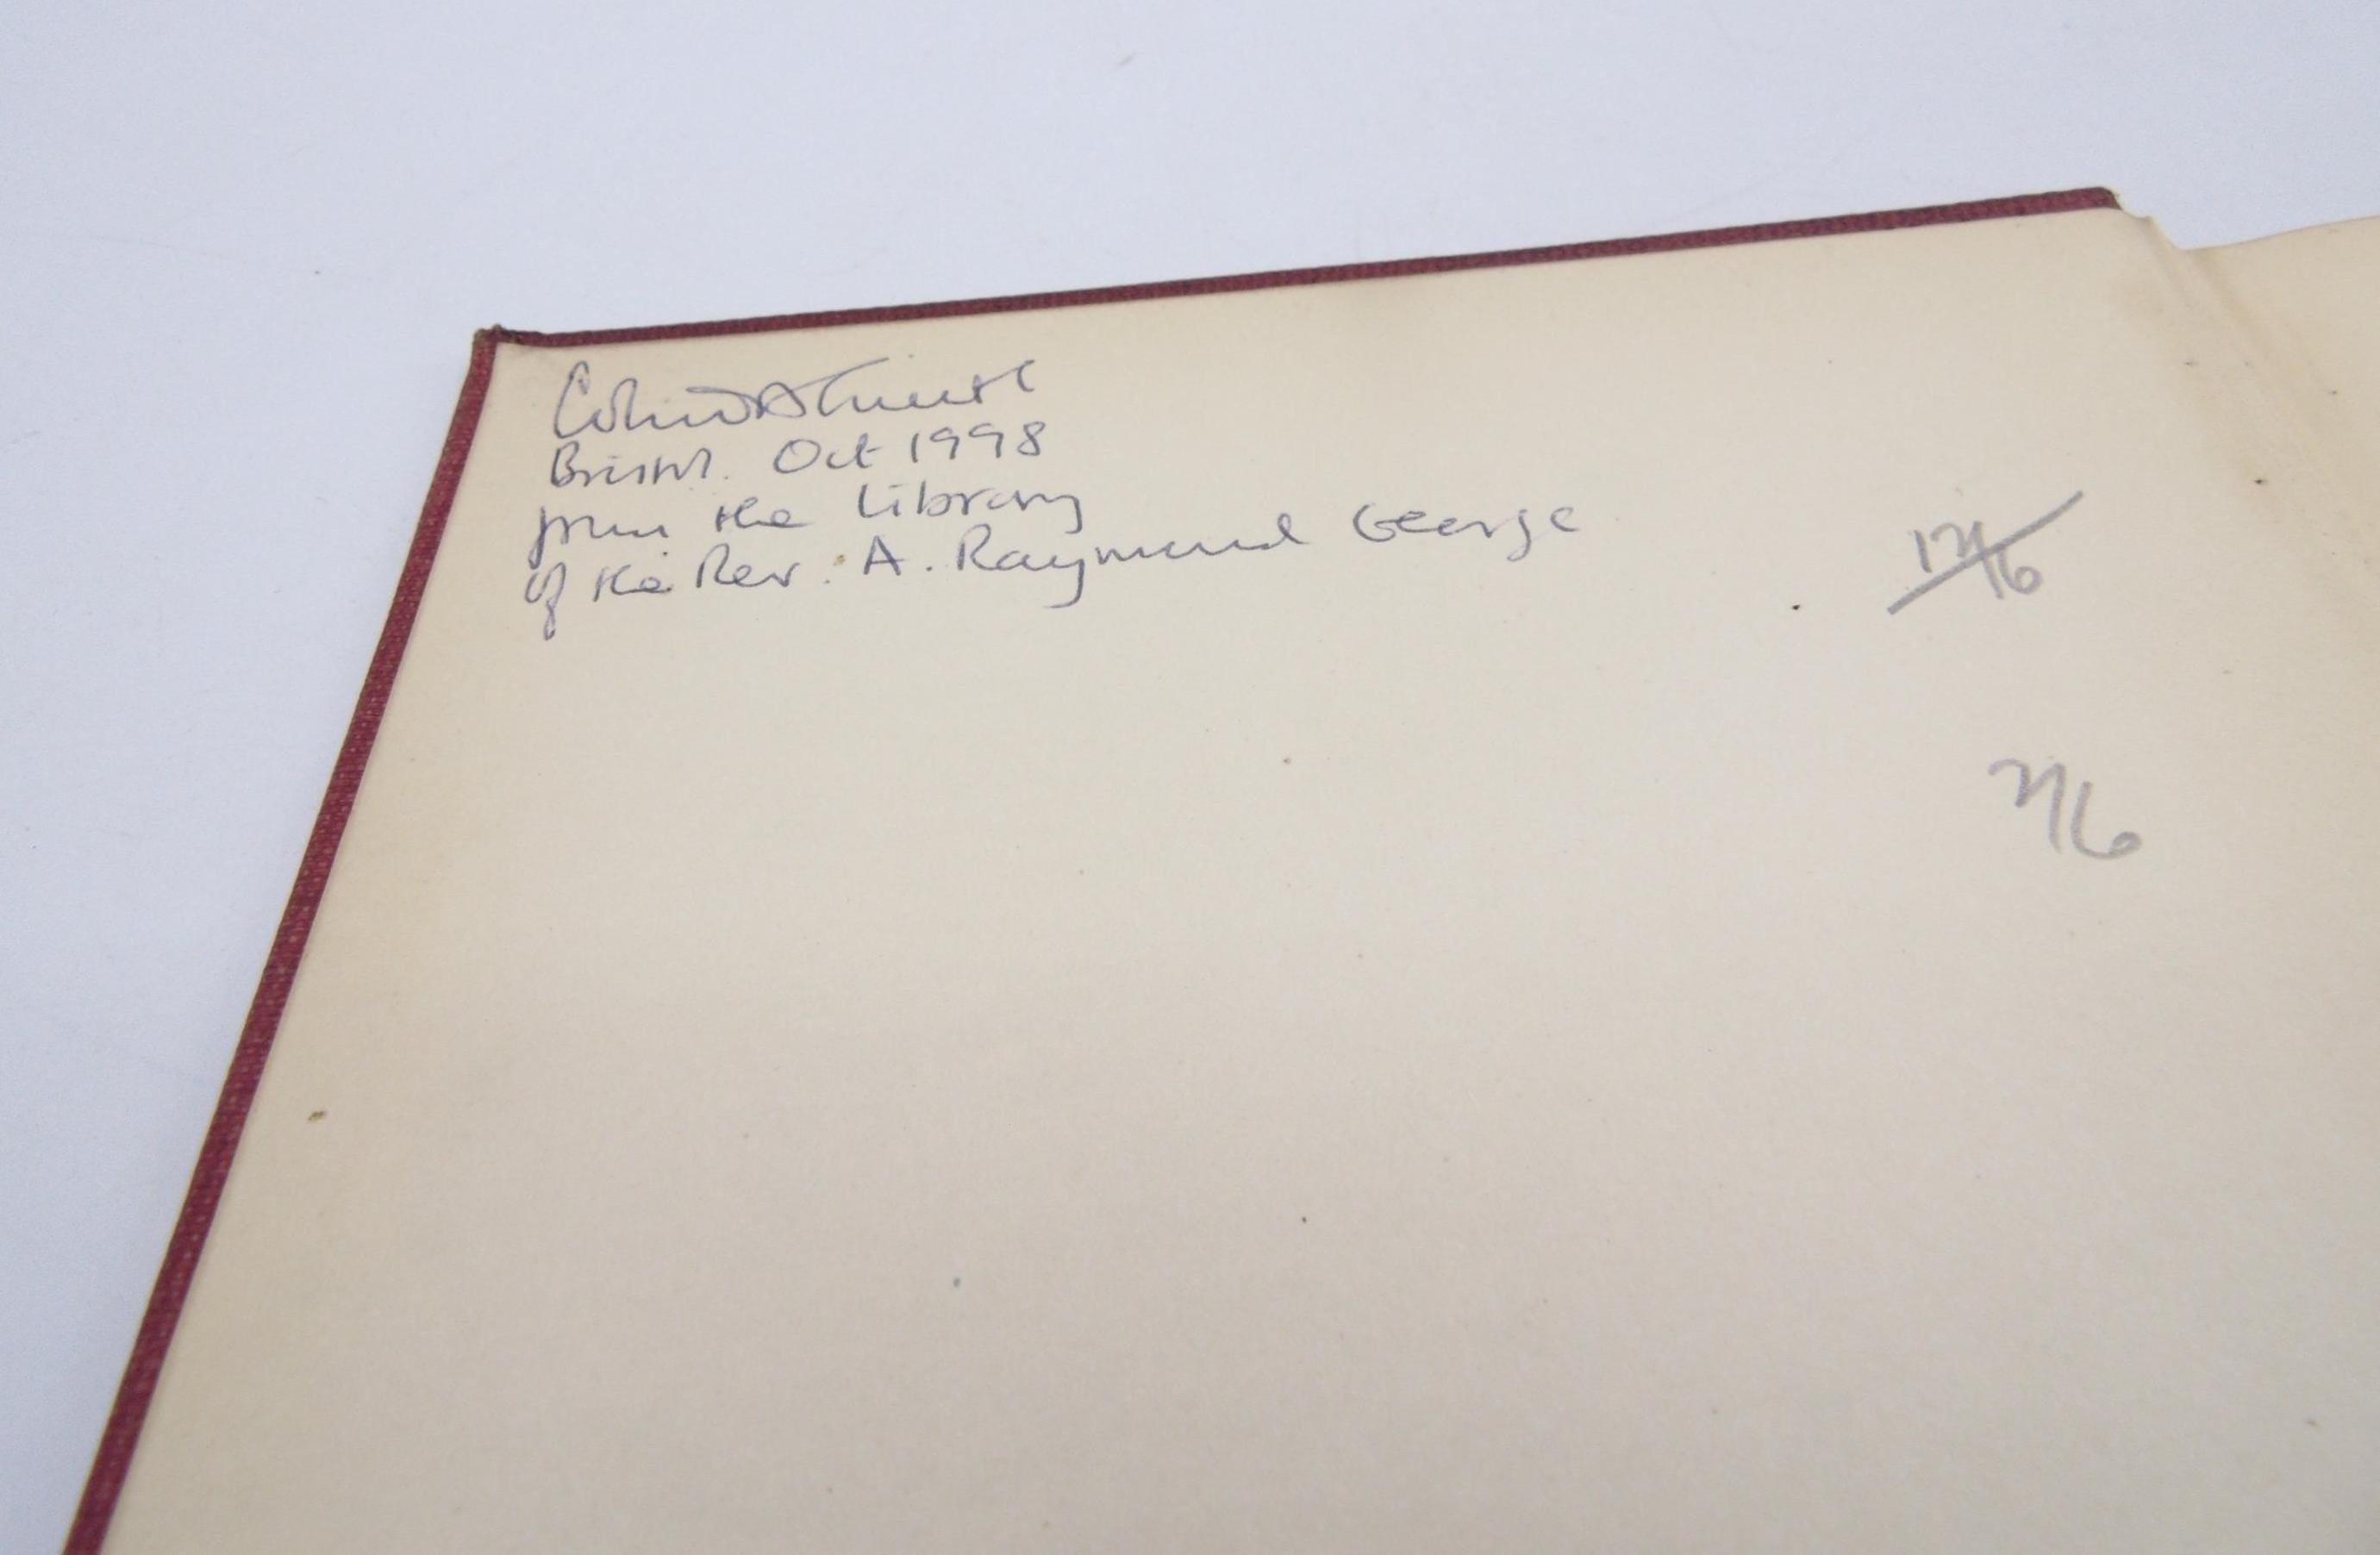 Bristol. Oct 1998
from the Library
of the Rev. A. Raymond George
12/6
7/6